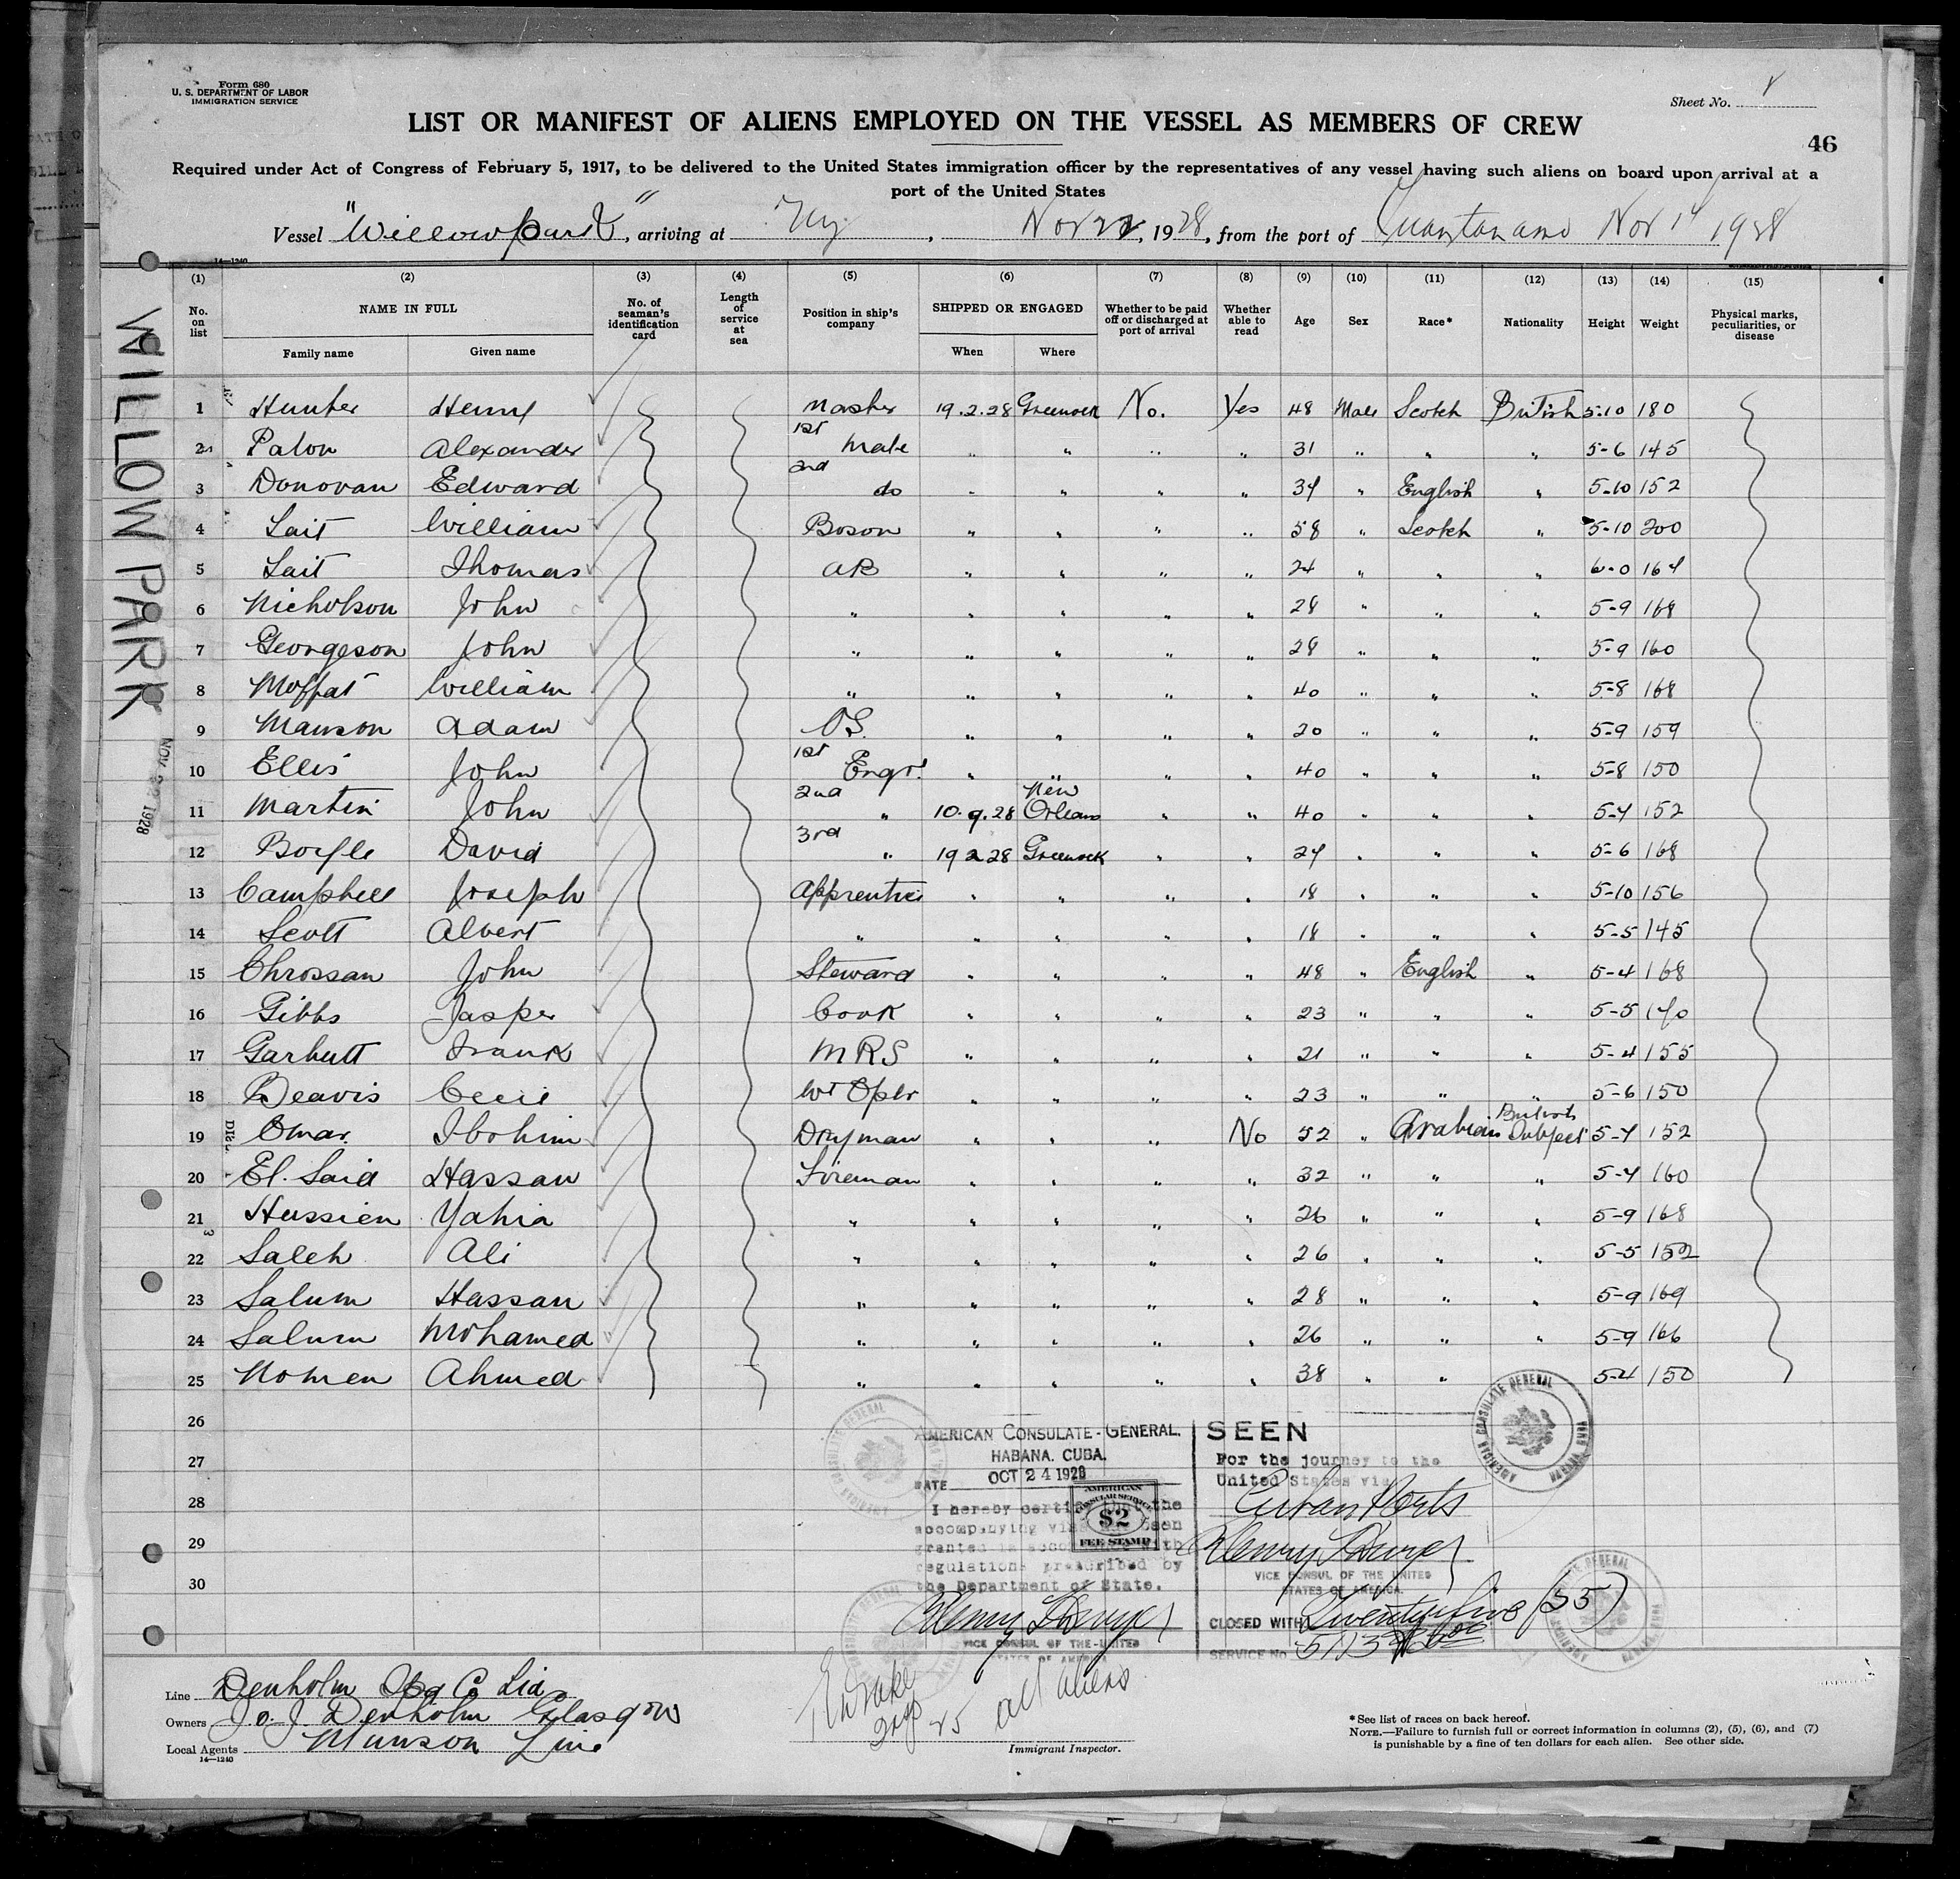 Form 680
U. S. DEPARTMENT OF LABOR
IMMIGRATION SERVICE
Sheet No.
LIST OR MANIFEST OF ALIENS EMPLOYED ON THE VESSEL AS MEMBERS OF CREW
46
Required under Act of Congress of February 5, 1917, to be delivered to the United States immigration officer by the representatives of any vessel having such aliens on board upon arrival at a
port of the United States
Vessel "Willowpark", arriving at NY, Nov 22, 1928, from the port of Guantanamo Nov 14 1928
14—1240
(1) (2) (3) (4) (5) (6) (7) (8) (9) (10) (11) (12) (13) (14) (15)
No. on list NAME IN FULL Family name Given name No. of seaman's identification card Length of service at sea Position in ship's company SHIPPED OR ENGAGED When Where Whether to be paid off or discharged at port of arrival Whether able to read Age Sex Race* Nationality Height Weight Physical marks, peculiarities, or disease
WILLOW PARK
NOV 22 1928
1 Hunter Henry Master 19.2.28 Greenock No. Yes 48 Male Scotch British 5-10 180
2 Paton Alexander 1st Mate " " " " 31 " " " 5-6 145
3 Donovan Edward 2nd do " " " " 34 " English " 5-10 152
4 Lait William Boson " " " " 58 " Scotch " 5-10 200
5 Lait Thomas AB " " " " 24 " " " 6-0 164
6 Nicholson John " " " " " 28 " " " 5-9 168
7 Georgeson John " " " " " 28 " " " 5-9 160
8 Moffat William " " " " " 40 " " " 5-8 168
9 Manson Adam OS. " " " " 20 " " " 5-9 159
10 Ellis John 1st Engr. " " " " 40 " " " 5-8 150
11 Martin John 2nd " 10.9.28 New Orleans " " 40 " " " 5-4 152
12 Boyle David 3rd " 19 2 28 Greenock " " 24 " " " 5-6 168
13 Campbell Joseph Apprentice " " " " 18 " " " 5-10 156
14 Scott Albert " " " " " 18 " " " 5-5 145
15 Chrossan John Steward " " " " 48 " English " 5-4 168
16 Gibbs Jasper Cook " " " " 23 " " " 5-5 140
17 Garbutt Frank MRS " " " " 21 " " " 5-4 155
18 Beavis Cecil WT Optr " " " " 23 " " " 5-6 150
19 Omar. Ibohim Dnyman " " " No 52 " Arabian British Subject 5-4 152
20 El. Said Hassan Fireman " " " " 32 " " " 5-4 160
21 Hussien Yahia " " " " " 26 " " " 5-9 168
22 Saleh Ali " " " " " 26 " " " 5-5 152
23 Salum Hassan " " " " " 28 " " " 5-9 169
24 Salum Mohamed " " " " " 26 " " " 5-9 166
25 Nomen Ahmed " " " " " 38 " " 5-4 150
26
27
28
29
30
AMERICAN CONSULATE-GENERAL.
HABANA. CUBA.
DATE OCT 24 1928
I hereby certify that the
accompanying visa has been
granted in accordance with
regulations prescribed by
the Department of State.
VICE CONSUL OF THE UNITED
STATES OF AMERICA
AMERICAN
CONSULAR SERVICE
$2
FEE STAMP
AMERICAN CONSULATE GENERAL
SEEN
For the journey to the
United States via
Cuban Ports
VICE CONSUL OF THE UNITED
STATES OF AMERICA.
CLOSED WITH Twenty five (25)
SERVICE No.
AMERICAN CONSULATE GENERAL
HABANA CUBA
Line Denholm Co Ltd
Owners J. & J. Denholm Glasgow
Local Agents Munson Line
14—1240
25 all aliens
Immigrant Inspector.
*See list of races on back hereof.
NOTE.—Failure to furnish full or correct information in columns (2), (5), (6), and (7)
is punishable by a fine of ten dollars for each alien. See other side.